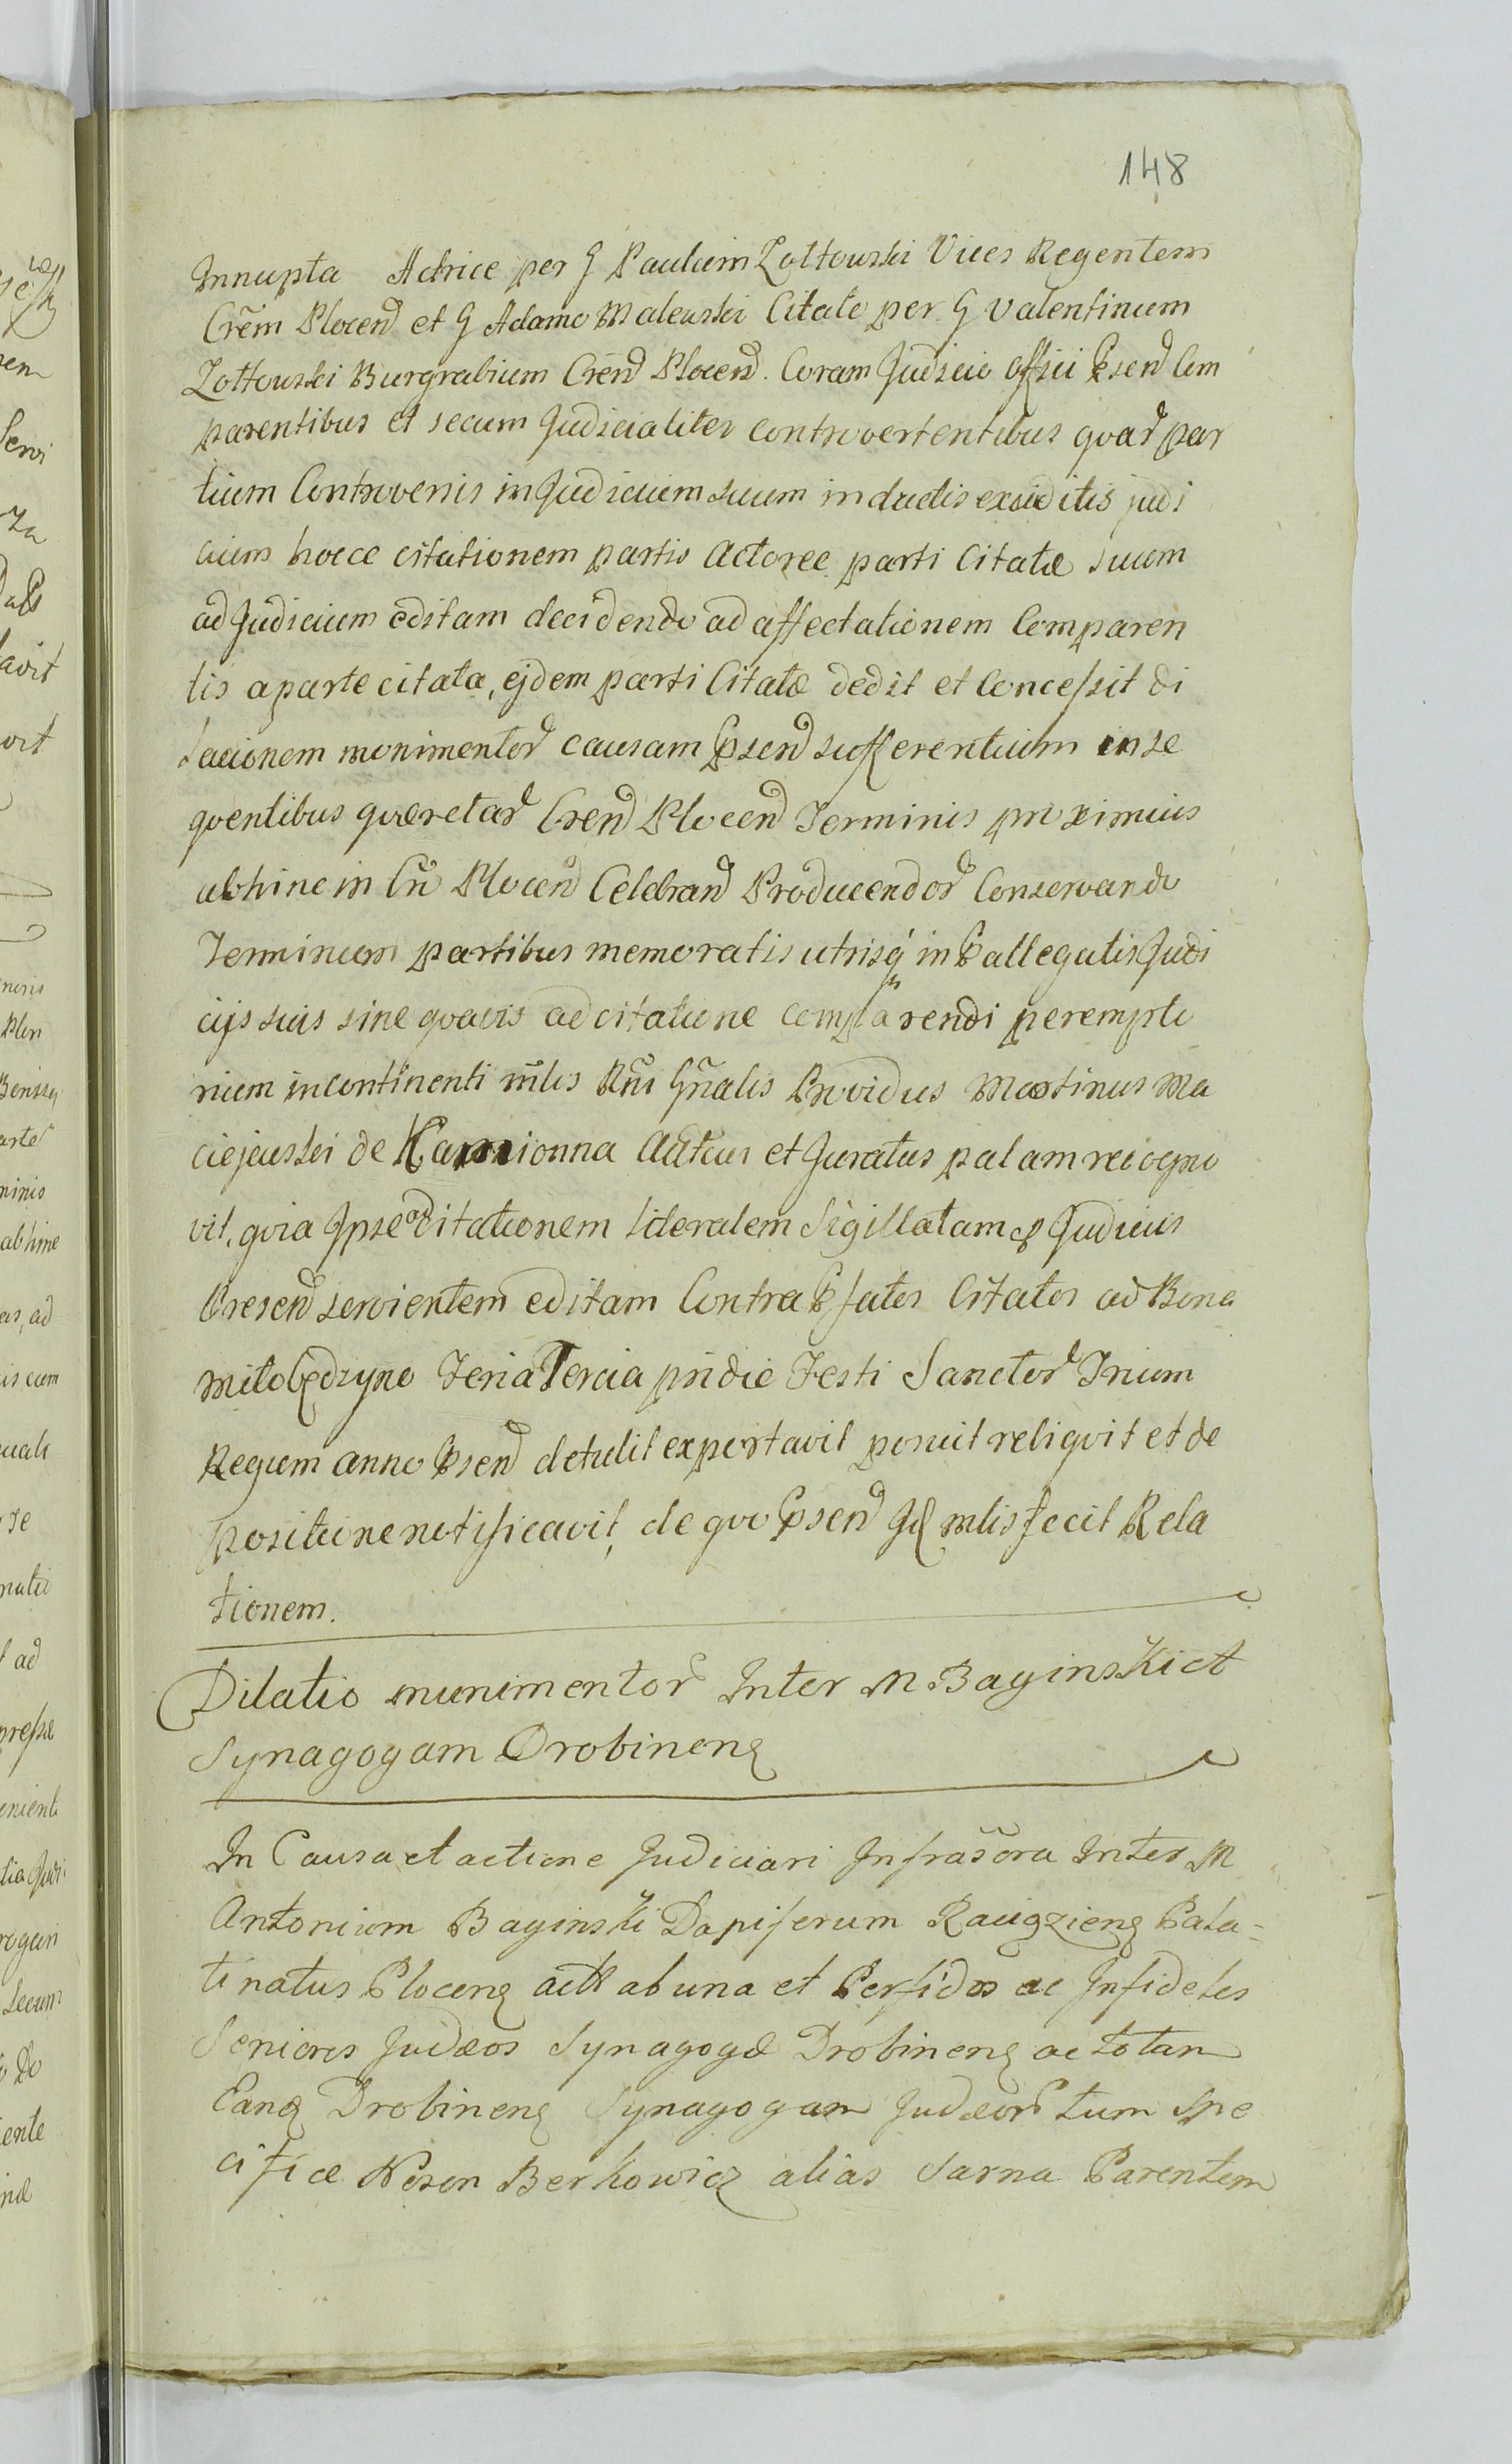 148
Innupta Actrice per G Paulum Zołtowski Vices Regentem
Crẽm Plocen et G Adamo Malewski Citato per G Valentinum
Zołtowski Burgrabium Cren Plocen. Coram Judicio Officii Psen Com
parentibus et secum Judicialiter controvertentibus quar par
tium Controversis in Judicium suum inductis exauditis judi
cium hocce citationem partis Actoree parti Citatæ suum
ad Judicium editam decidendo ad affectationem Comparen
tis a parte citata, ejdem parti Citatæ dedit et Concessit di
lacionem monimentor causam Psen sufferentium in se
quentibus quæretar Cren Plocen Terminis proximius
abhinc in Cñ Plocen Celebran Producendor Conservando
Terminum partibus memoratis utrisq in Pallegatis Judi
cijs suis sine quavis adcitatione comparendi perempto
rium incontinenti mlis Rñi Gñalis Providus Martinus Ma
ciejewski de Kamionna Autus et Juratus palam recogno
vit, quia Ipse aditationem literalem Sigillatam p Judiciis
Presen servientem editam Contra Pfatos Citatos ad Bona
Miłobędzyno Feria Tercia pridie Festi Sanctor Trium
Regum anno Psen detulit exportavit posuit reliquit et de
positione notificavit, de quo Psen Id mlis fecit Rela
tionem.
Dilatio munimentor Inter M Baginski et
Synagogam Drobinen
In Causa et actione Judiciari Infrascra Inter M
Antonium Baginski Dapiferum Racigzien Pala-
tinatus Plocen act ab una et Perfidos ac Infideles
Seniores Judæos Synagogæ Drobinen ac totam
Eand Drobinen Synagogam Judæor tum Spe
cifice Nosen Berkowicz alias Sarna Parentem